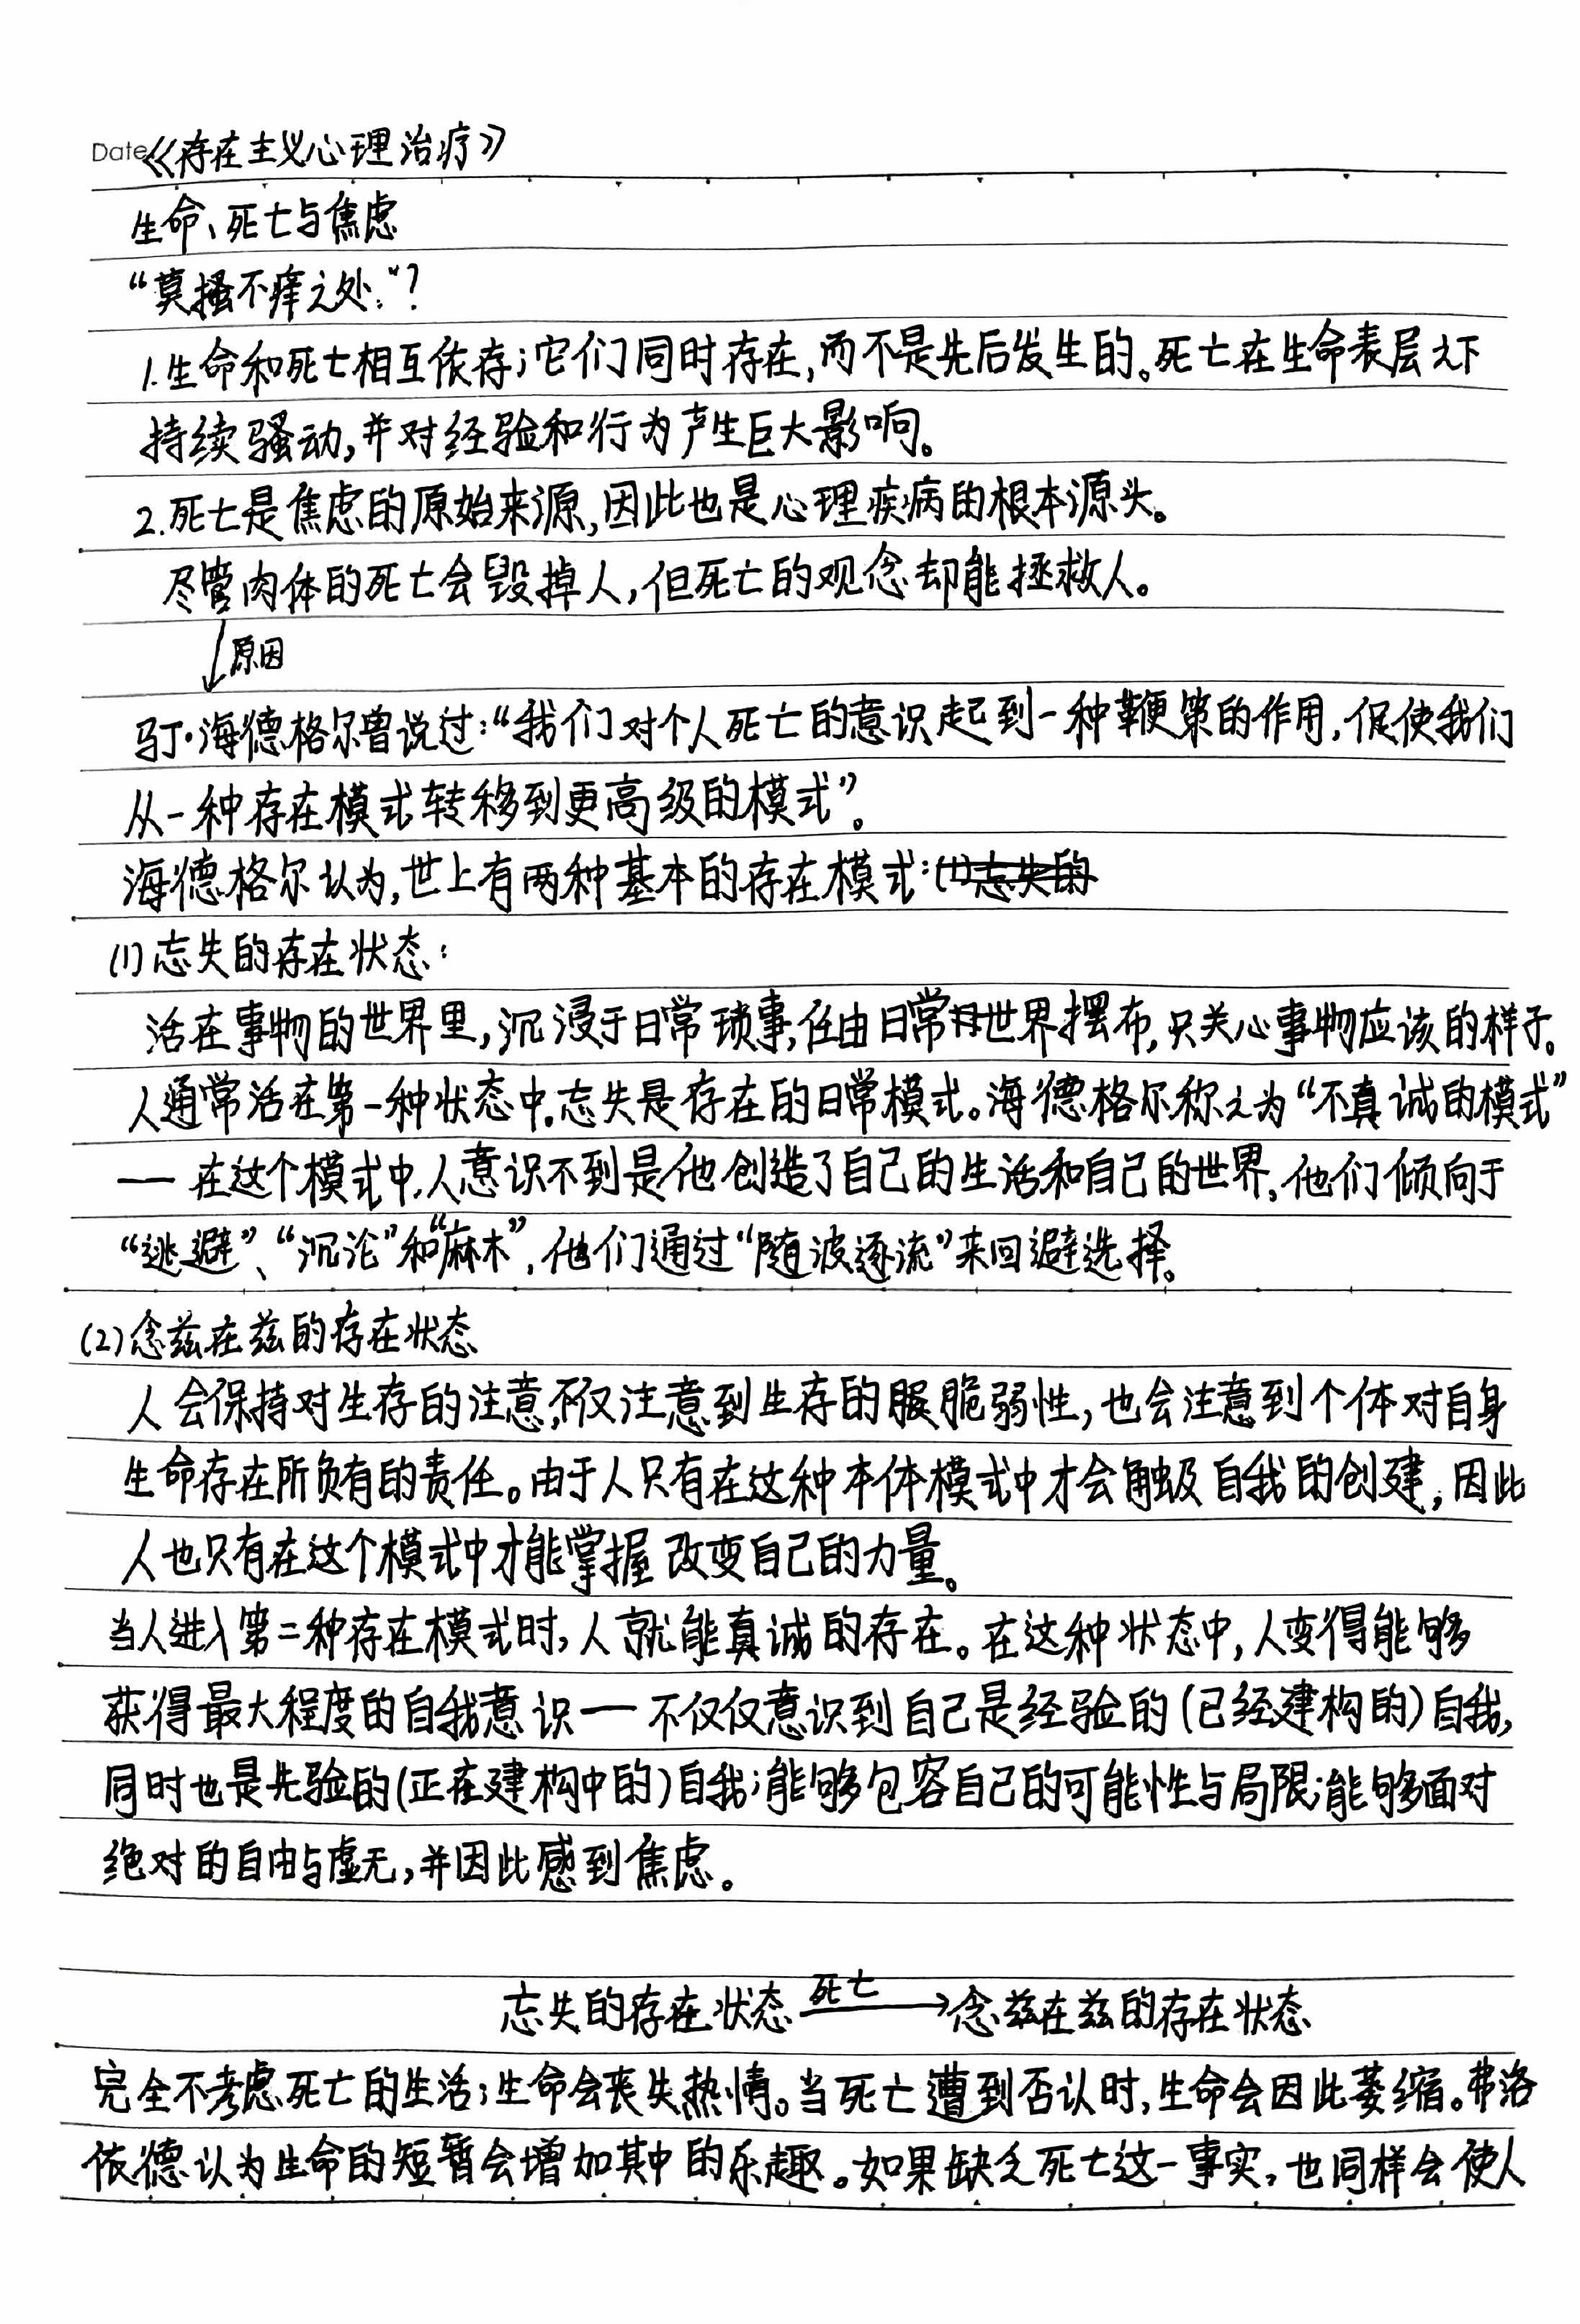 Date《存在主义心理治疗》
生命、死亡与焦虑
“莫搔不痒之处”？
1.生命和死亡相互依存；它们同时存在，而不是先后发生的。死亡在生命表层之下
持续骚动，并对经验和行为产生巨大影响。
2.死亡是焦虑的原始来源，因此也是心理疾病的根本源头。
尽管肉体的死亡会毁掉人，但死亡的观念却能拯救人。
↓原因
马丁·海德格尔曾说过：“我们对个人死亡的意识起到一种鞭策的作用，促使我们
从一种存在模式转移到更高级的模式”。
海德格尔认为，世上有两种基本的存在模式：(1)忘失的
(1)忘失的存在状态：
活在事物的世界里，沉浸于日常琐事，任由日常世界摆布，只关心事物应该的样子。
人通常活在第一种状态中。忘失是存在的日常模式。海德格尔称之为“不真诚的模式”
—在这个模式中，人意识不到是他创造了自己的生活和自己的世界，他们倾向于
“逃避”、“沉沦”和“麻木”，他们通过“随波逐流”来回避选择。
(2)念兹在兹的存在状态
人会保持对生存的注意，不仅注意到生存的脆弱性，也会注意到个体对自身
生命存在所负有的责任。由于人只有在这种本体模式中才会触及自我的创建，因此
人也只有在这个模式中才能掌握改变自己的力量。
当人进入第二种存在模式时，人就能真诚的存在。在这种状态中，人变得能够
获得最大程度的自我意识—不仅仅意识到自己是经验的(已经建构的)自我，
同时也是先验的(正在建构中的)自我；能够包容自己的可能性与局限；能够面对
绝对的自由与虚无，并因此感到焦虑。
忘失的存在状态 死亡→念兹在兹的存在状态
完全不考虑死亡的生活；生命会丧失热情。当死亡遭到否认时，生命会因此萎缩。弗洛
依德认为生命的短暂会增加其中的乐趣。如果缺乏死亡这一事实，也同样会使人